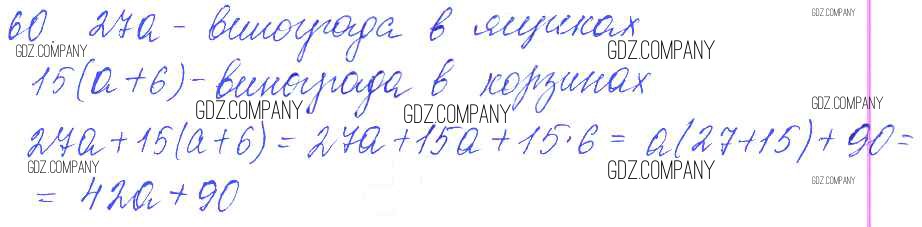 60. 27a - винограда в ящиках
GDZ.COMPANY
GDZ.COMPANY
GDZ.COMPANY
15(a+6) - винограда в корзинах
GDZ.COMPANY
GDZ.COMPANY
GDZ.COMPANY
27a+15(a+6) = 27a+15a+15·6 = a(27+15)+90=
GDZ.COMPANY
GDZ.COMPANY
GDZ.COMPANY
= 42a+90